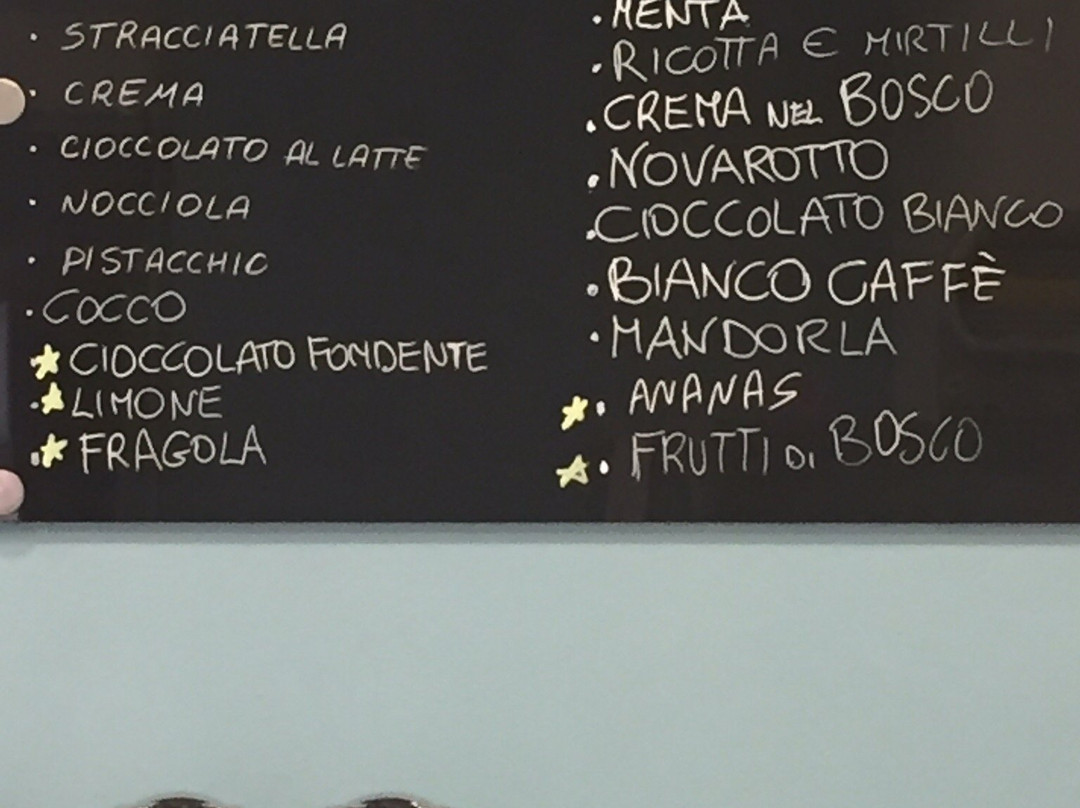 · STRACCIATELLA
· CREMA
· CIOCCOLATO AL LATTE
· NOCCIOLA
· PISTACCHIO
· COCCO
★ CIOCCOLATO FONDENTE
·★ LIMONE
·★ FRAGOLA
· MENTA
· RICOTTA E MIRTILLI
· CREMA NEL BOSCO
· NOVAROTTO
· CIOCCOLATO BIANCO
· BIANCO CAFFÈ
· MANDORLA
★· ANANAS
★· FRUTTI DI BOSCO